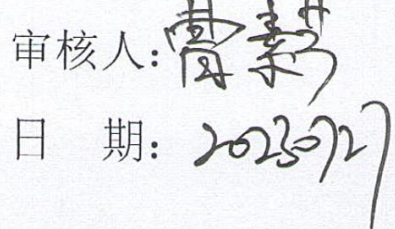 审核人：
日　期：20230727